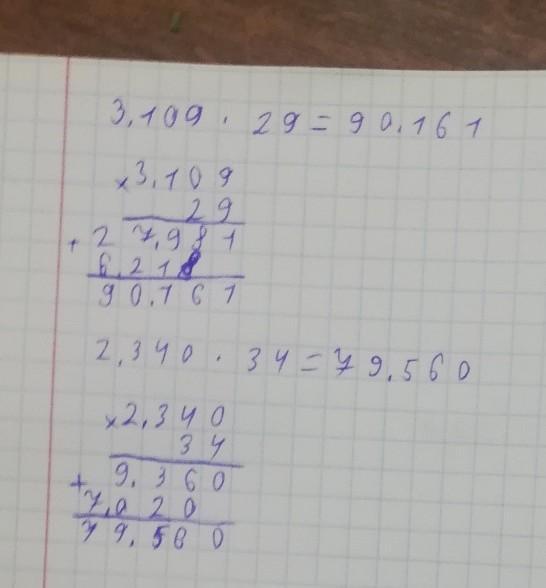 3,109 · 29 = 90.161
×3,109
29
+ 2 7,981
6,218
90,161
2,340 · 34 = 79.560
×2,340
34
+ 9.360
7,020
79.560